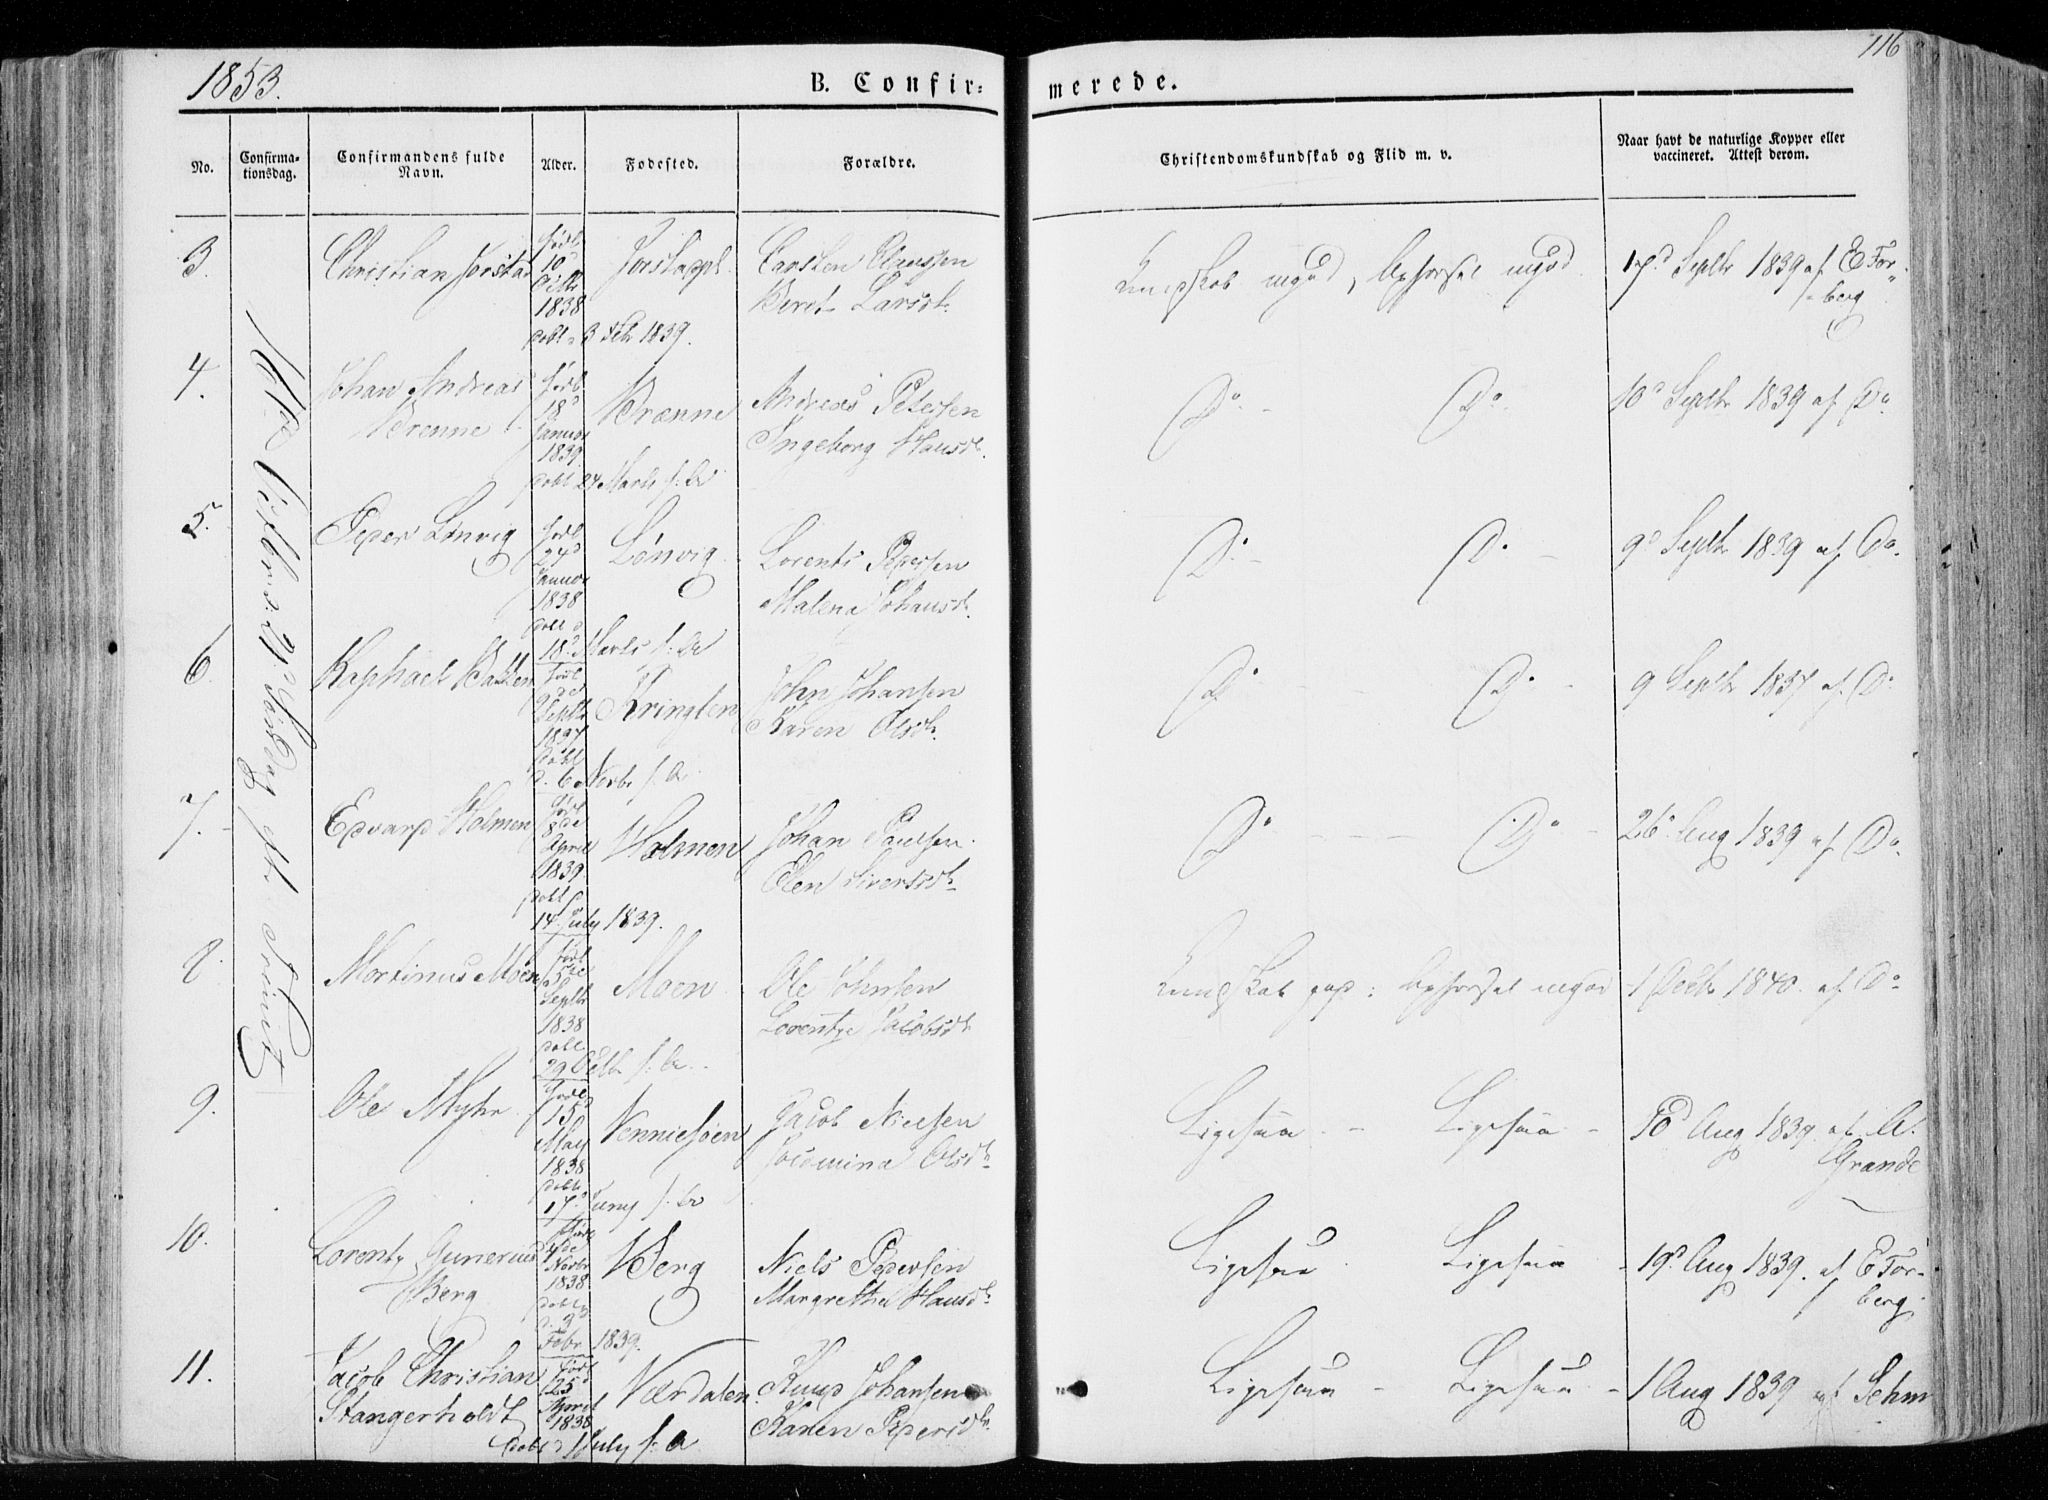 1853.
B. Confir=
merede.
116
No.
Confirma-
tionsdag.
Confirmandens fulde
Navn.
Alder.
Fødested.
Forældre.
Christendomskundskab og Flid m. v.
Naar havt de naturlige Kopper eller
vaccineret. Attest derom.
3.
Christian
født
10d
1838
døbt 3 Febr 1839.
Carsten Clausen
Beret Larsdt.
Kundskab mgod, Opførsel mgod
17d Septbr 1839 af E Tor-
berg
4.
Johan Andreas
Brenne
født
18d
Januar
1839
døbt 24 Marts s: A
Brænne
Andreas Petersen
Ingeborg Hansdt.
Do - Do
10d Septbr 1839 af Do
5.
Peder Lønvig
født
24d
Januar
1838
døbt d
18d Marts s: A
Lønvig
Lorents Pedersen
Malena Johansdt.
Do - Do -
9d Septbr 1839 af Do.
6.
Raphael Bakken
født
Septbr
1837
døbt
d. 6 Novbr s. A
Kringlen
John Johansen
Karen Olsdt.
Do - - Do -
9 Septbr 1837 af Do
7.
Edvard Holmen
født
8de
April
1839
døbt d
14 July 1839.
Holmen
Johan Paulsen
Elen Sivertsdt.
Do - - - Do -
26d Aug 1839 af Do.
8.
Martinus Moen
født
5de
Septbr
1838
døbt
29 Octb s: A.
Moen
Ole Johnsen
Lorentze Jacobsdt.
Kundskab god: Opførsel mgod
1 Decbr 1840. af Do
9.
Ole Myhr
født
15d
May
1838
døbt
17d Juny s. A
Jacob Nielsen
Olsdt.
Ligesaa - Ligesaa -
Aug 1839 af A.
Grande
10.
Lorentz Gunerius
Berg
født
4de
Novbr
1838.
døbt
d. 3
Febr 1839.
Berg
Niels Pedersen
Margrethe Hansdt.
Ligesaa Ligesaa -
19d Aug 1839. af E Tor-
berg.
11.
Jacob Christian
Stangerholdt
født
25
April
1838
døbt d 1 July s: A
Værdalen
Knud Johansen
Karen Pedersdt.
Ligesaa - Ligesaa -
1 Aug 1839 af Sehm